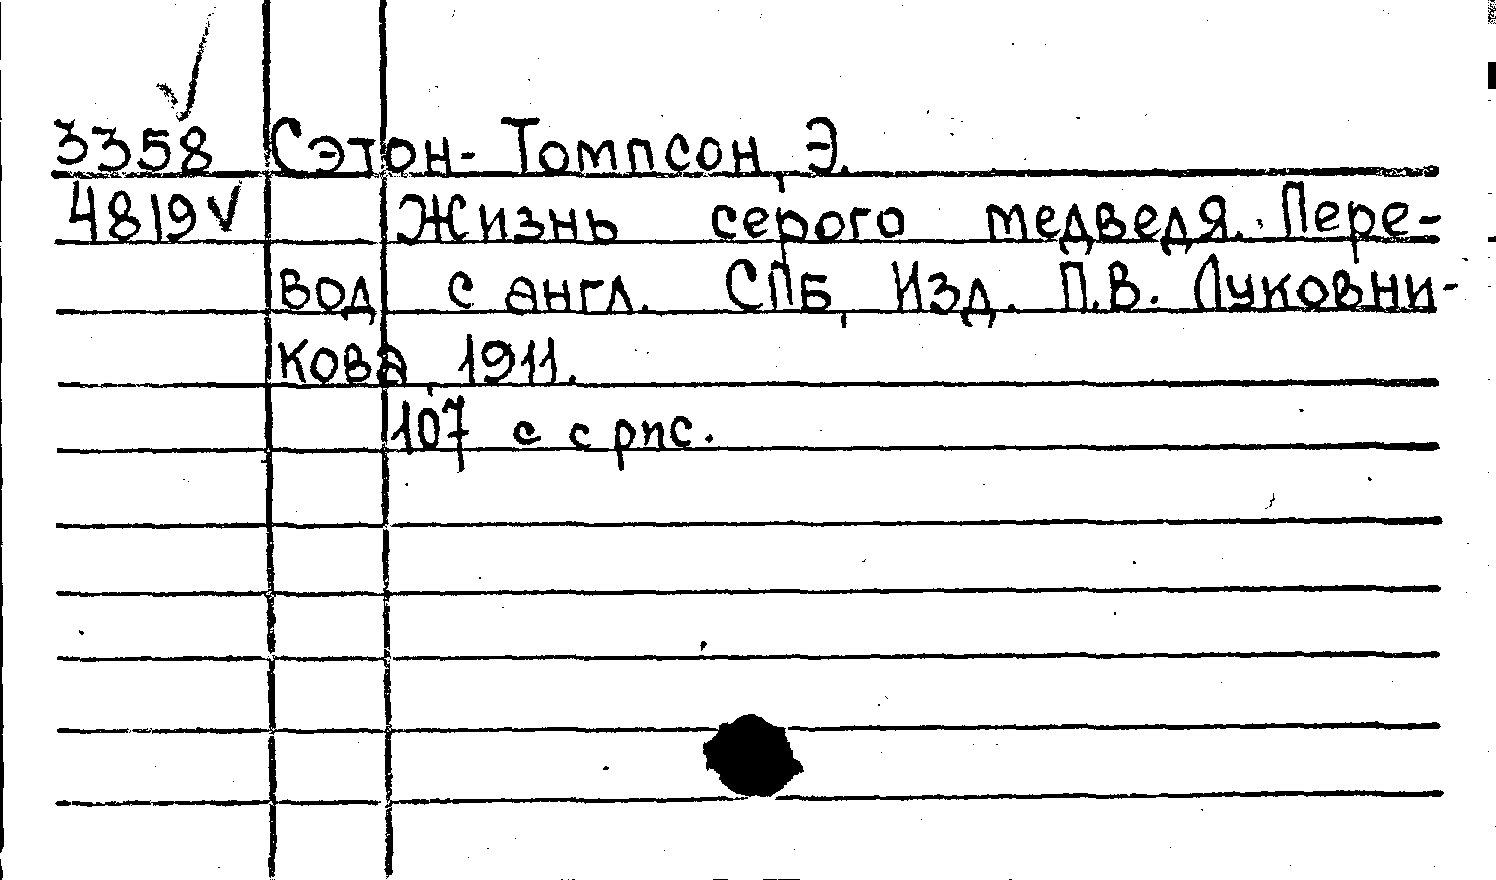 3358 Сэтон-Томпсон, Э.
4819 Жизнь серого медведя. Пере-
вод с англ. СПБ, Изд. П.В. Луковни-
кова, 1911.
107 с с рис.